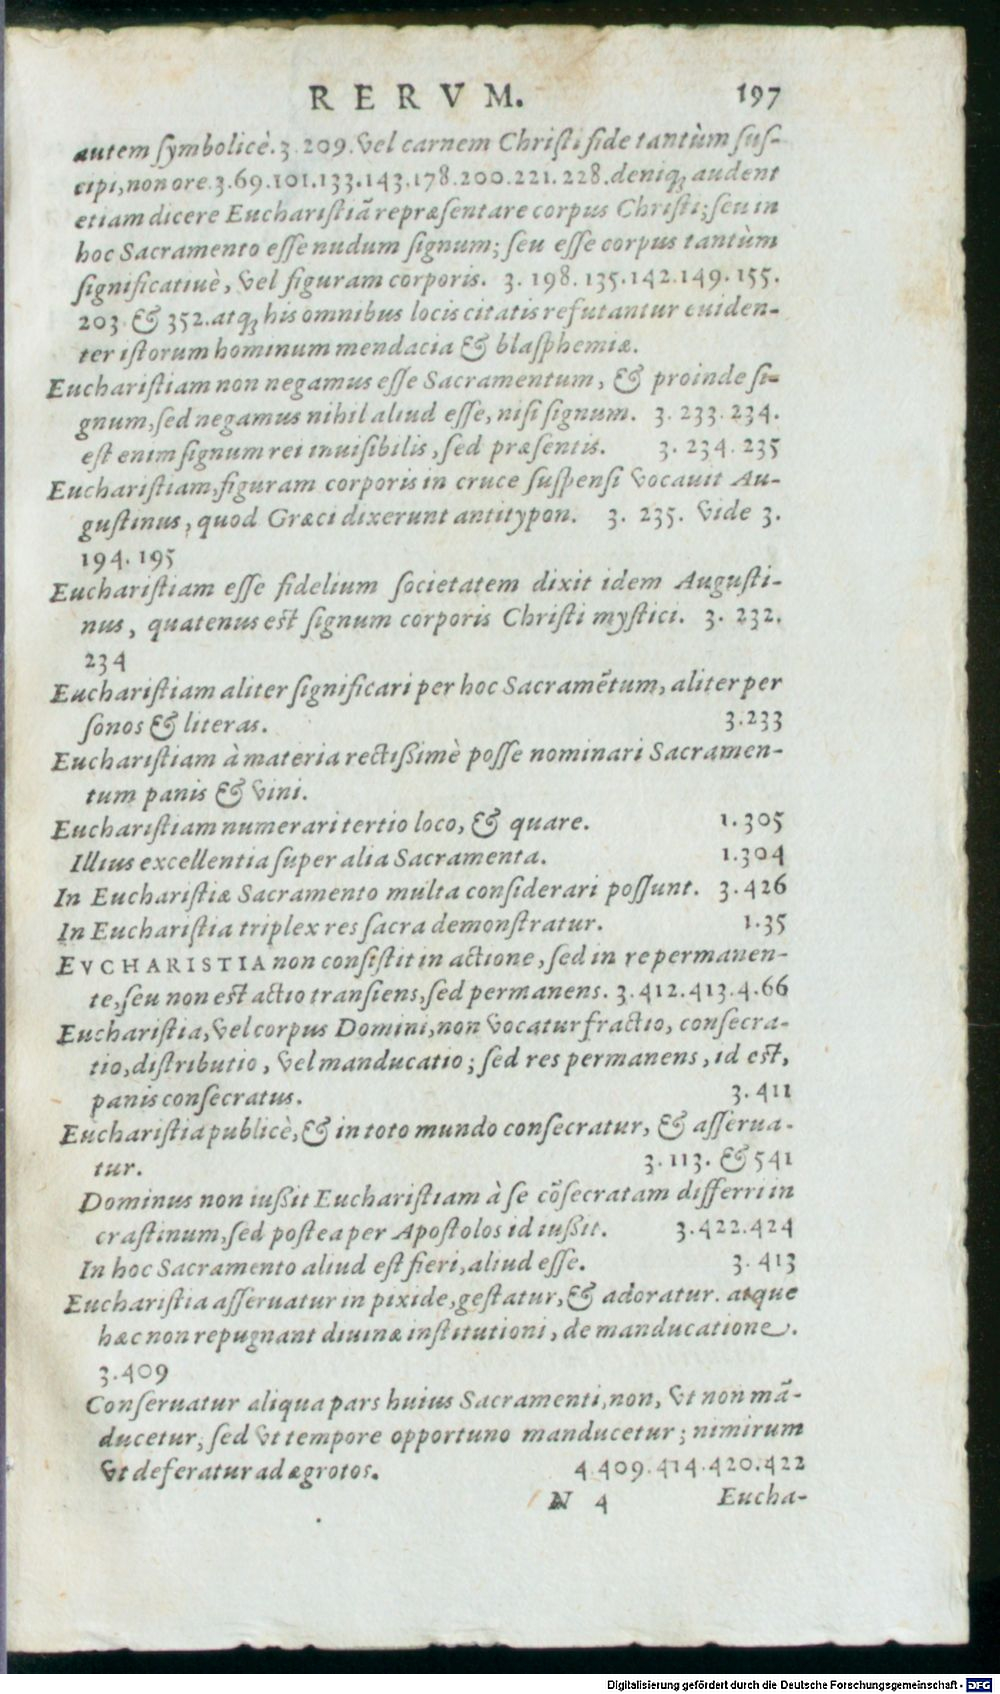 RERVM. 197
autem ſymbolicè. 3. 209. vel carnem Chriſti fide tantùm ſuſ-
cipi, non ore. 3. 69. 101. 133. 143. 178. 200. 221. 228. deniqꝫ audent
etiam dicere Euchariſtiã repræſentare corpus Chriſti; ſeu in
hoc Sacramento eſſe nudum ſignum; ſeu eſſe corpus tantùm
ſignificatiuè, vel figuram corporis. 3. 198. 135. 142. 149. 155.
203. & 352. atqꝫ his omnibus locis citatis refutantur euiden-
ter iſtorum hominum mendacia & blaſphemiæ.
Euchariſtiam non negamus eſſe Sacramentum, & proinde ſi-
gnum, ſed negamus nihil aliud eſſe, niſi ſignum. 3. 233. 234.
eſt enim ſignum rei inuiſibilis, ſed præſentis. 3. 234. 235
Euchariſtiam, figuram corporis in cruce ſuſpenſi vocauit Au-
guſtinus, quod Græci dixerunt antitypon. 3. 235. vide 3.
194. 195
Euchariſtiam eſſe fidelium ſocietatem dixit idem Auguſti-
nus, quatenus eſt ſignum corporis Chriſti myſtici. 3. 232.
234
Euchariſtiam aliter ſignificari per hoc Sacramẽtum, aliter per
ſonos & literas. 3. 233
Euchariſtiam à materia rectißimè poſſe nominari Sacramen-
tum panis & vini.
Euchariſtiam numerari tertio loco, & quare. 1. 305
Illius excellentia ſuper alia Sacramenta. 1. 304
In Euchariſtiæ Sacramento multa conſiderari poſſunt. 3. 426
In Euchariſtia triplex res ſacra demonſtratur. 1. 35
EVCHARISTIA non conſiſtit in actione, ſed in re permanen-
te, ſeu non eſt actio tranſiens, ſed permanens. 3. 412. 413. 4. 66
Euchariſtia, vel corpus Domini, non vocatur fractio, conſecra-
tio, diſtributio, vel manducatio; ſed res permanens, id eſt,
panis conſecratus. 3. 411
Euchariſtia publicè, & in toto mundo conſecratur, & aſſerua-
tur. 3. 113. & 541
Dominus non iußit Euchariſtiam à ſe cõſecratam differri in
craſtinum, ſed poſtea per Apoſtolos id iußit. 3. 422. 424
In hoc Sacramento aliud eſt fieri, aliud eſſe. 3. 413
Euchariſtia aſſeruatur in pixide, geſtatur, & adoratur. atque
hæc non repugnant diuinæ inſtitutioni, de manducatione.
3. 409
Conſeruatur aliqua pars huius Sacramenti, non, vt non mã-
ducetur, ſed vt tempore opportuno manducetur; nimirum
vt deferatur ad ægrotos. 4. 409. 414. 420. 422
N 4 Eucha-
Digitalisierung gefördert durch die Deutsche Forschungsgemeinschaft - DFG